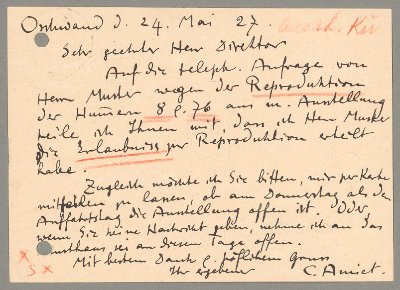 Oschwand d. 24. Mai 27.
Aussch. Kü
Sehr geehrter Herr Direktor
Auf die teleph. Anfrage von
Herrn Muster wegen der Reproduktion
der Numern 8 & 76 aus m. Ausstellung
teile ich Ihnen mit, dass ich Herrn Muster
die Erlaubniss zur Reproduktion erteilt
habe.
Zugleich möchte ich Sie bitten, mir per Karte
mitteilen zu lassen, ob am Donnerstag als den
Auffahrtstag die Ausstellung offen ist. Oder
wenn Sie keine Nachricht geben, nehme ich an das
Kunsthaus sei an diesem Tage offen.
Mit bestem Dank & höflichem Gruss
Ihr ergebener C. Amiet.